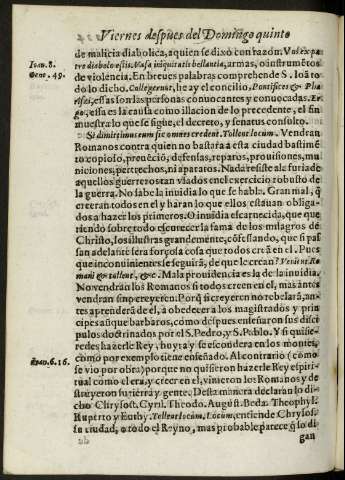 Viernes despues del Domingo quinto
de malicia diabolica, a quien se dixo con razon. Vos ex pa
Ioan. 8.
tre diabolo estis. Vasa iniquitatis bellantia, armas, o instrumẽtos
Gene. 49.
de violencia. En breues palabras comprehende S. Ioã to
do lo dicho. Collegerunt, he ay el concilio. Pontifices & Pha
risei, essas son las personas conuocantes y conuocadas. Er-
go, essa es la causa como illacion de lo precedente, el fin
muestra lo que se sigue, el decreto, y senatus consulto.
Si dimittimus eum sic omnes credent. Tollent locum. Vendran
Romanos contra quien no bastarà esta ciudad bastimẽ
to copioso, preuẽciõ, defensas, reparos, prouisiones, mu
niciones, pertrechos, ni aparatos. Nada resiste a la furia de
aquellos guerreros tan vsados en el exercicio robusto de
la guerra. No sabe la inuidia lo que se habla. Gran mal, q̃
creeran todos en el y haran lo que ellos estauan obliga-
dos a hazer los primeros. O inuidia escarnecida, que que
riendo sobre todo escurecer la fama de los milagros de
Christo, los illustras grandemente, cõfessando, que si pas
san adelante sera forçosa cosa que todos creã en el. Pues
que inconuinientes se seguirã, de que le crean? Venient Ro-
mani & tollent, &c. Mala prouidencia es la de la inuidia.
No vendran los Romanos si todos creen en el, mas antes
vendran sino creyeren. Porq̃ si creyeren no rebelarã, an-
tes aprenderã de el, à obedecer a los magistrados y prin
cipes aũque barbaros, como despues enseñaron sus disci
pulos doctrinados por el S. Pedro, y S. Pablo. Y si quisie-
redes hazerle Rey, huyra y se escondera en los montes,
Ioan. 6. 16.
como por exemplo tiene enseñado. Al contrario (como
se vio por obra) porque no quisieron hazerle Rey espiri-
tual como el era, y creer en el, vinieron los Romanos y de
struyeron su tierra y gente. Desta manera declaran lo di
cho Chrysost. Cyril. Theodo. August. Beda. Theophyl.
Ruperto y Euthy. Tollent locum, Locum, entiende Chrysos.
su ciudad, o todo el Reyno, mas probable parece q̃ lo di
gan